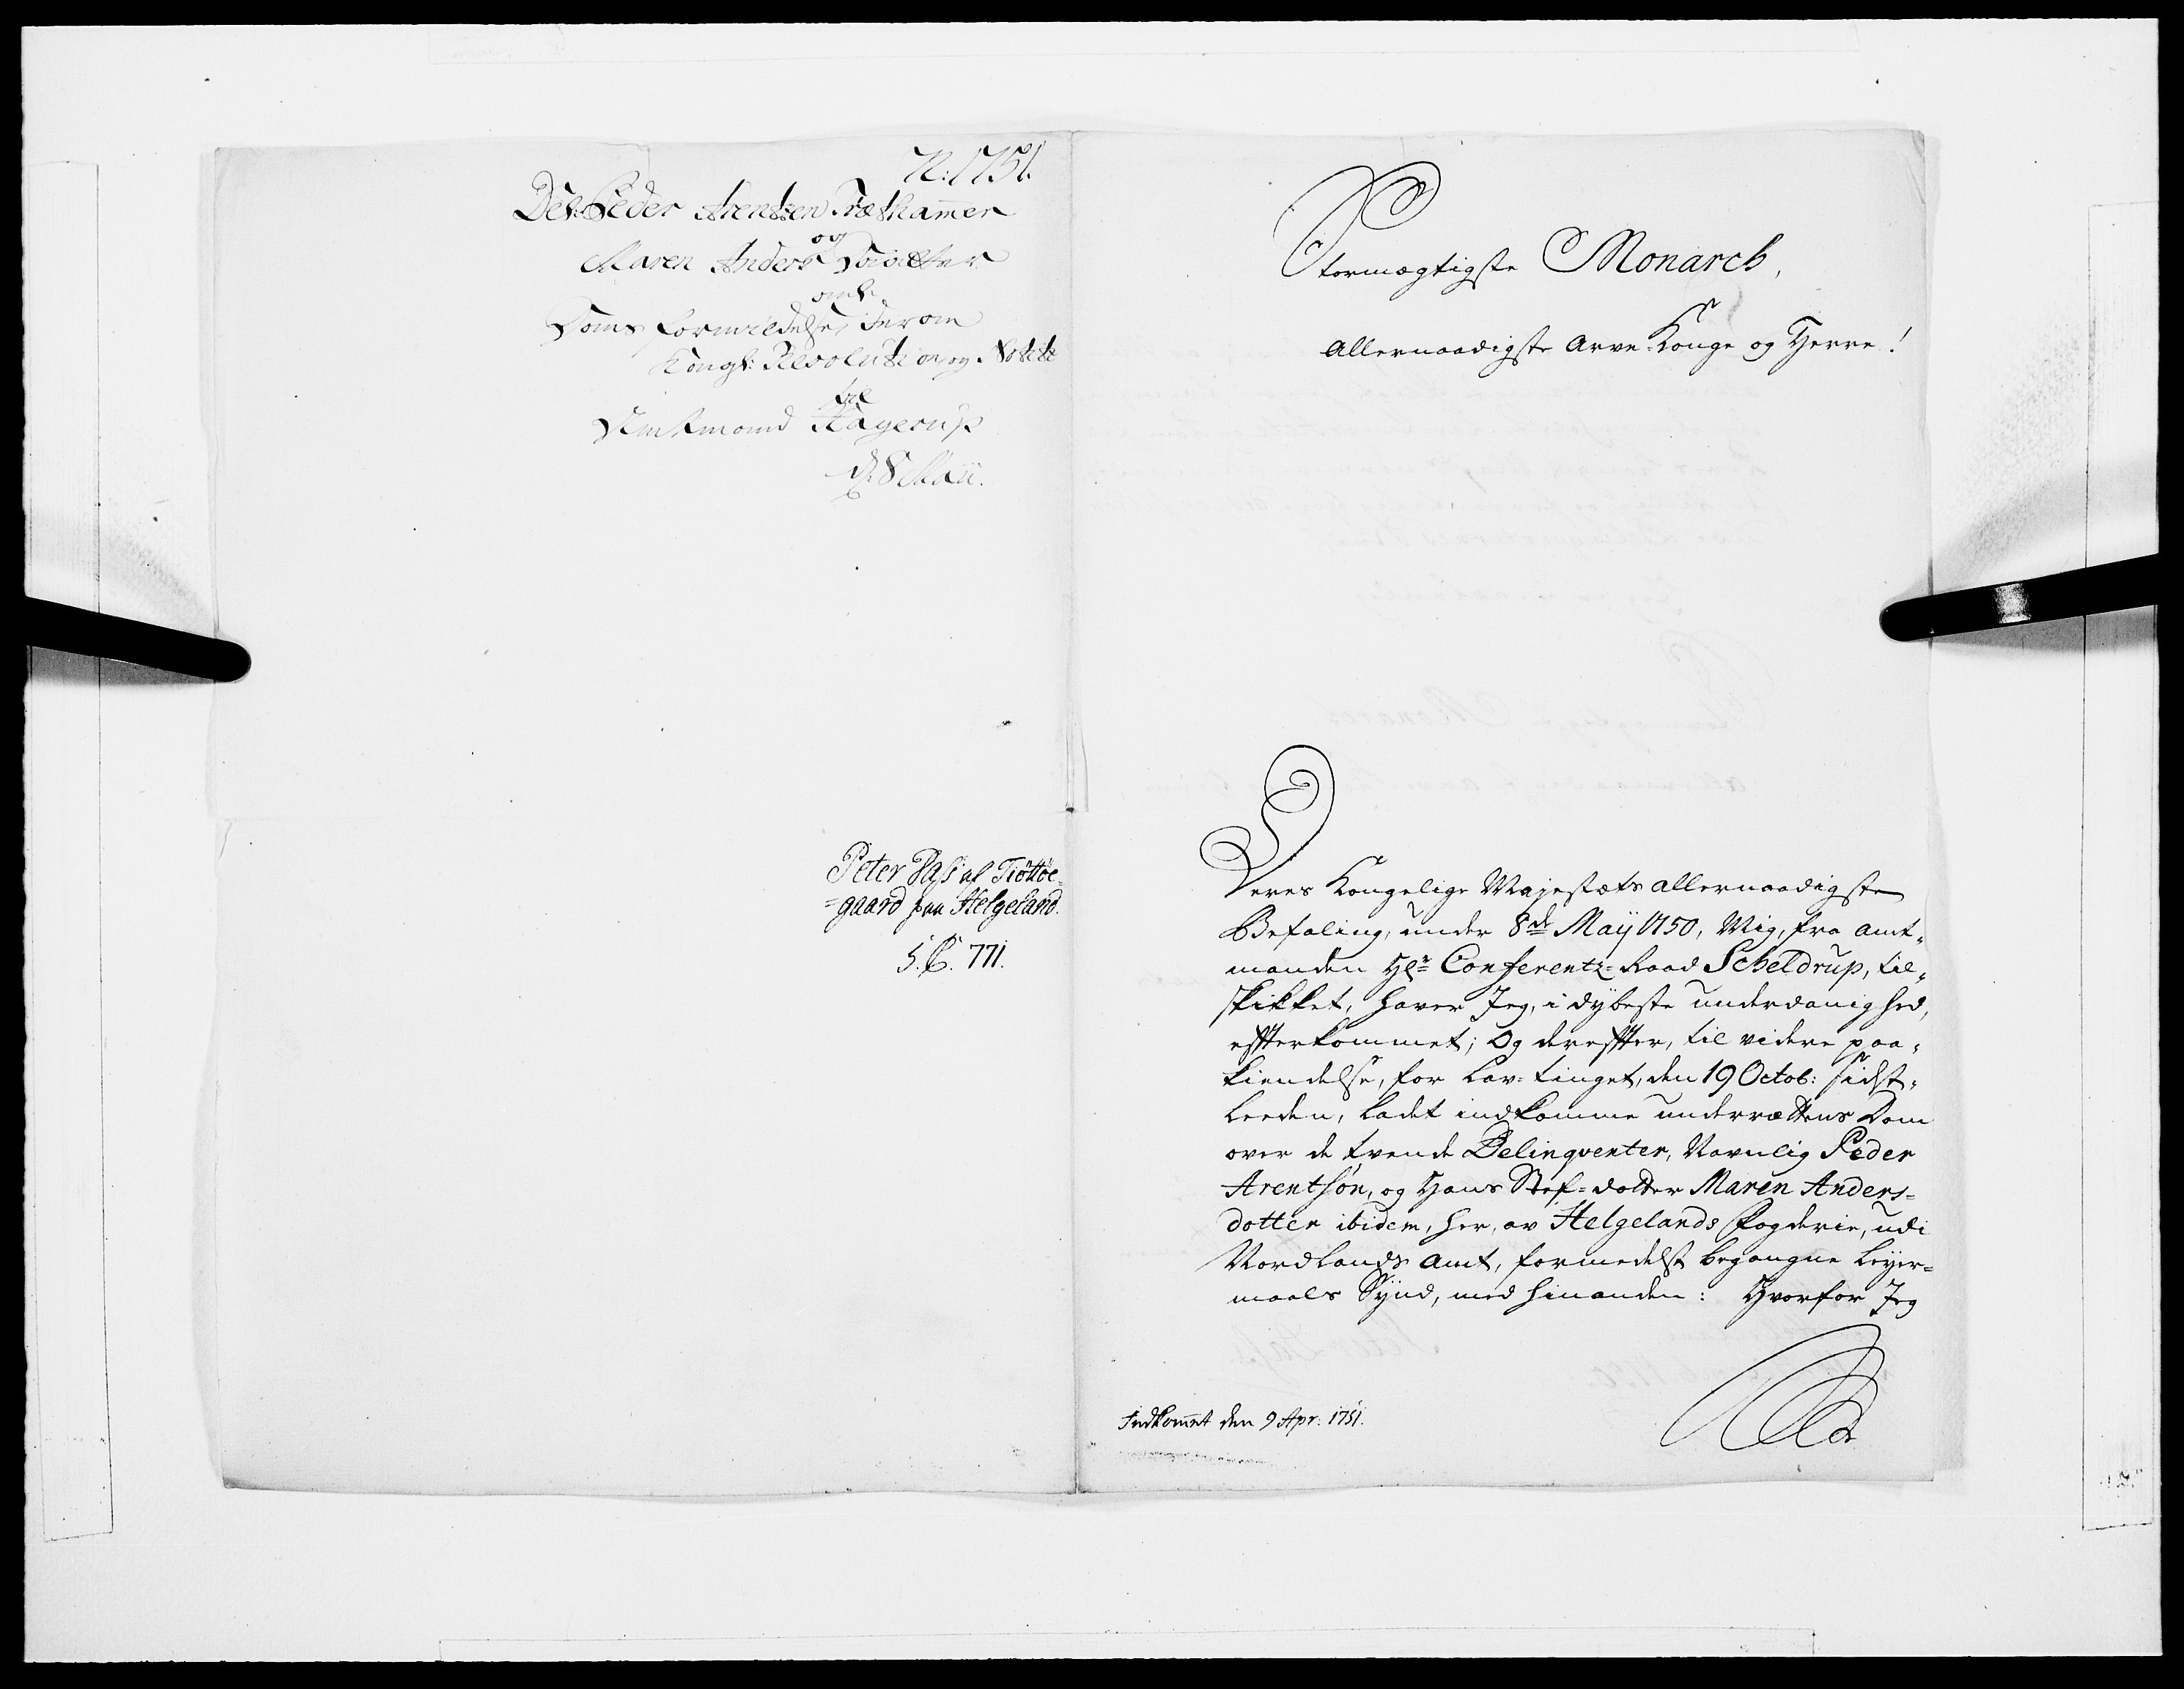 N: 1751.
Del: Peder Arentzen Trætkammer
og
Maren Anders Daatter
ank.
Doms formildelse, derom
Kongl: Resolution og Notite
til
Amtmand Hagerup
d: 8 Maii.
Peter Dass af Tiøttöe-
=gaard paa Helgeland.
S. B. 771.
Stormægtigste Monarch,
Allernaadigste Arve-Konge og Herre!
Deres Kongelige Majestæts allernaadigste
Befaling, under 8de Maÿ 1750, Mig, fra Amt-
manden Hr. Conferentz-Raad Scheldrup, til-
skikket, haver Jeg, i dÿbeste underdanighed,
effterkommet; Og dereffter, til videre paa-
kiendelse, for Lav-tinget, den 19 Octob: sidst-
leeden, ladet indkomme underrættens Dom
over de tvende Delinqventer, Navnlig Peder
Arentsøn, og Hans Stef-dotter Maren Anders-
dotter ibidem, her, av Helgelands Fogderie, udi
Nordlands Amt, formedelst begangne Leÿer-
maals Sÿnd, med hinanden: Hvorfor Jeg
Indkommet den 9 Apr: 1751.